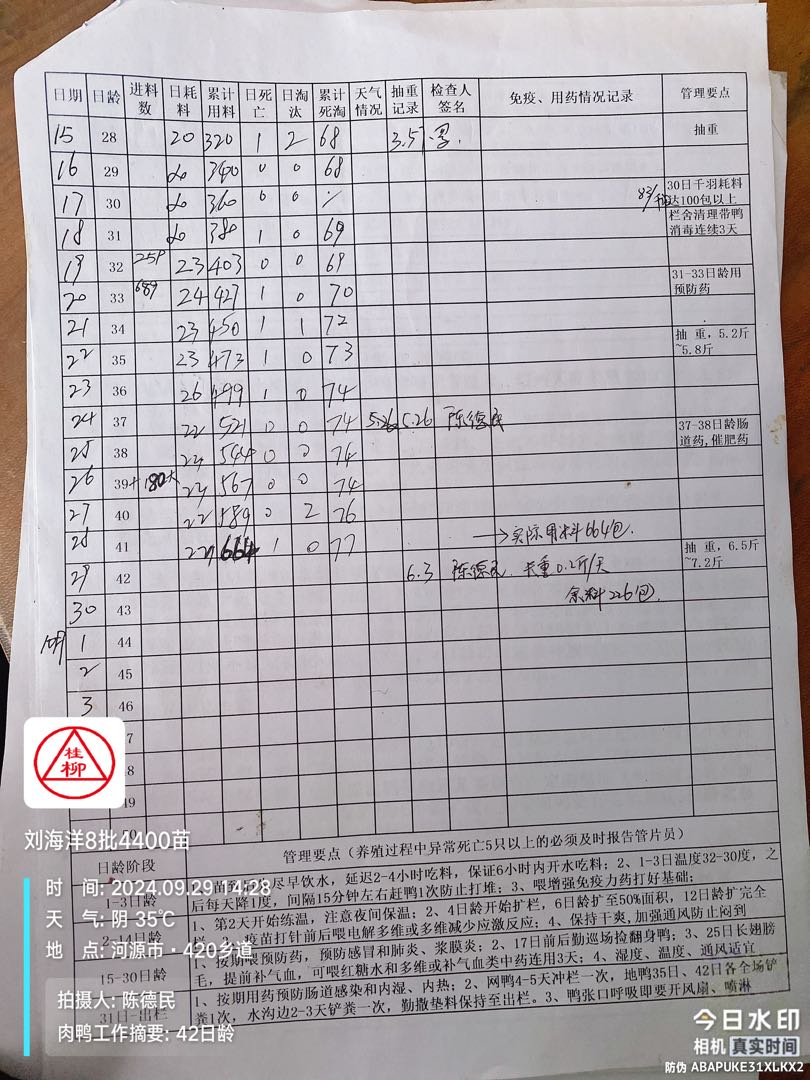 日期 日龄 进料数 日耗料 累计用料 日死亡 日淘汰 累计死淘 天气情况 抽重记录 检查人签名 免疫、用药情况记录 管理要点
15 28 20 320 1 2 68 3.5 抽重
16 29 20 340 0 0 68
17 30 20 360 0 0 30日千羽耗料达100包以上
18 31 20 380 1 0 69 栏舍清理带鸭消毒连续3天
19 32 23 403 0 0 69
20 33 24 427 1 0 70 31-33日龄用预防药
21 34 23 450 1 1 72
22 35 23 473 1 0 73 抽 重,5.2斤~5.8斤
23 36 26 499 1 0 74
24 37 22 521 0 0 74 5.26 5.26 陈德民
25 38 23 544 0 0 74 37-38日龄肠道药,催肥药
26 39 180 23 567 0 0 74
27 40 22 589 0 2 76
28 41 664 1 0 77 →实际用料664包.
29 42 6.3 陈德民. 长重0.2斤/天 抽 重,6.5斤~7.2斤
30 43 余料226包.
10月 1 44
2 45
3 46
7
8
49
桂柳
刘海洋8批4400苗
日龄阶段 管理要点(养殖过程中异常死亡5只以上的必须及时报告管片员)
1-3日龄 尽早饮水,延迟2-4小时吃料,保证6小时内开水吃料;2、1-3日温度32-30度,之
后每天降1度,间隔15分钟左右赶鸭1次防止打堆;3、喂增强免疫力药打好基础;
2-14日龄 1、第2天开始练温,注意夜间保温;2、4日龄开始扩栏,6日龄扩至50%面积,12日龄扩完全
疫苗打针前后喂电解多维或多维减少应激反应;4、保持干爽,加强通风防止闷到
15-30日龄 1、按期喂预防药,预防感冒和肺炎、浆膜炎;2、17日前后勤巡场捡翻身鸭;3、25日长翅膀
毛,提前补气血,可喂红糖水和多维或补气血类中药连用3天;4、湿度、温度、通风适宜
31日-出栏 1、按期用药预防肠道感染和内湿、内热;2、网鸭4-5天冲栏一次,地鸭35日、42日各全场铲
粪1次,水沟边2-3天铲粪一次,勤撒垫料保持至出栏。3、鸭张口呼吸即要开风扇、喷淋
时 间: 2024.09.29 14:28
天 气: 阴 35℃
地 点: 河源市·420乡道
拍摄人: 陈德民
肉鸭工作摘要: 42日龄
今日水印
相机 真实时间
防伪 ABAPUKE31XLKX2